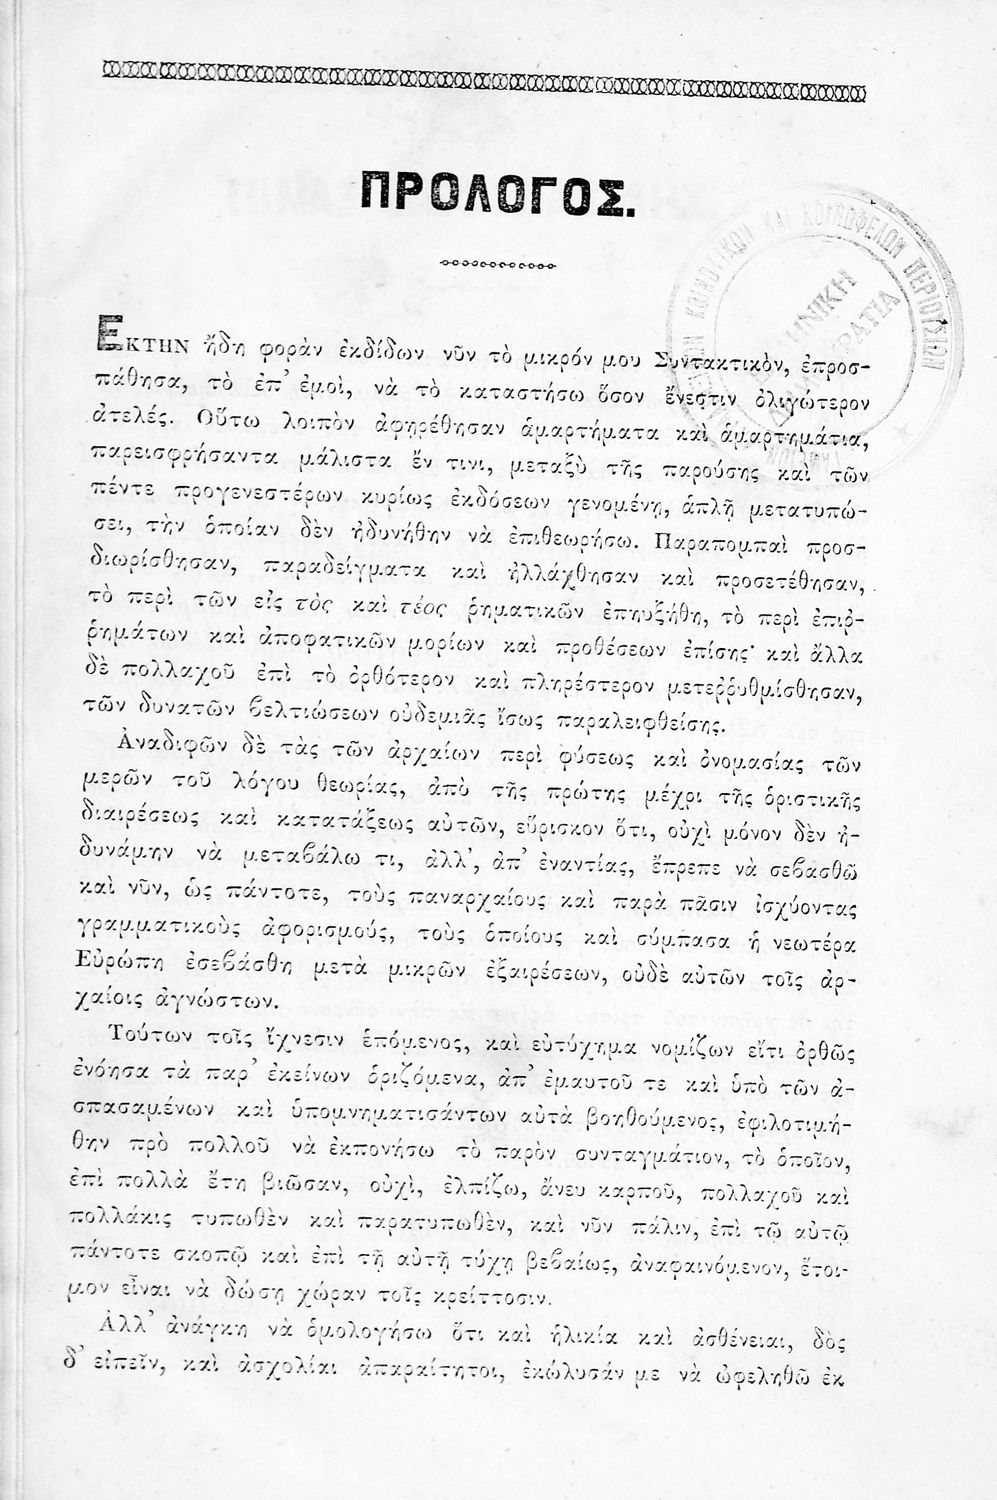 ΠΡΟΛΟΓΟΣ.
ΕΚΤΗΝ ἤδη φορὰν ἐκδίδων νῦν τὸ μικρόν μου Συντακτικὸν, ἐπροσ-
πάθησα, τὸ ἐπ' ἐμοὶ, νὰ τὸ καταστήσω ὅσον ἔνεστιν ὀλιγώτερον
ἀτελές. Οὕτω λοιπὸν ἀφῃρέθησαν ἁμαρτήματα καὶ ἁμαρτημάτια,
παρεισφρήσαντα μάλιστα ἔν τινι, μεταξὺ τῆς παρούσης καὶ τῶν
πέντε προγενεστέρων κυρίως ἐκδόσεων γενομένῃ, ἁπλῇ μετατυπώ-
σει, τὴν ὁποίαν δὲν ἠδυνήθην νὰ ἐπιθεωρήσω. Παραπομπαὶ προσ-
διωρίσθησαν, παραδείγματα καὶ ἠλλάχθησαν καὶ προσετέθησαν,
τὸ περὶ τῶν εἰς τὸς καὶ τέος ῥηματικῶν ἐπηυξήθη, τὸ περὶ ἐπιῤ-
ῥημάτων καὶ ἀποφατικῶν μορίων καὶ προθέσεων ἐπίσης· καὶ ἄλλα
δὲ πολλαχοῦ ἐπὶ τὸ ὀρθότερον καὶ πληρέστερον μετεῤῥυθμίσθησαν,
τῶν δυνατῶν βελτιώσεων οὐδεμιᾶς ἴσως παραλειφθείσης.
Ἀναδιφῶν δὲ τὰς τῶν ἀρχαίων περὶ φύσεως καὶ ὀνομασίας τῶν
μερῶν τοῦ λόγου θεωρίας, ἀπὸ τῆς πρώτης μέχρι τῆς ὁριστικῆς
διαιρέσεως καὶ κατατάξεως αὐτῶν, εὕρισκον ὅτι, οὐχὶ μόνον δὲν ἠ-
δυνάμην νὰ μεταβάλω τι, ἀλλ', ἀπ' ἐναντίας, ἔπρεπε νὰ σεβασθῶ
καὶ νῦν, ὡς πάντοτε, τοὺς παναρχαίους καὶ παρὰ πᾶσιν ἰσχύοντας
γραμματικοὺς ἀφορισμούς, τοὺς ὁποίους καὶ σύμπασα ἡ νεωτέρα
Εὐρώπη ἐσεβάσθη μετὰ μικρῶν ἐξαιρέσεων, οὐδὲ αὐτῶν τοῖς ἀρ-
χαίοις ἀγνώστων.
Τούτων τοῖς ἴχνεσιν ἑπόμενος, καὶ εὐτύχημα νομίζων εἴτι ὀρθῶς
ἐνόησα τὰ παρ' ἐκείνων ὁριζόμενα, ἀπ' ἐμαυτοῦ τε καὶ ὑπὸ τῶν ἀ-
σπασαμένων καὶ ὑπομνηματισάντων αὐτὰ βοηθούμενος, ἐφιλοτιμή-
θην πρὸ πολλοῦ νὰ ἐκπονήσω τὸ παρὸν συνταγμάτιον, τὸ ὁποῖον,
ἐπὶ πολλὰ ἔτη βιῶσαν, οὐχὶ, ἐλπίζω, ἄνευ καρποῦ, πολλαχοῦ καὶ
πολλάκις τυπωθὲν καὶ παρατυπωθὲν, καὶ νῦν πάλιν, ἐπὶ τῷ αὐτῷ
πάντοτε σκοπῷ καὶ ἐπὶ τῇ αὐτῇ τύχῃ βεβαίως, ἀναφαινόμενον, ἕτοι-
μον εἶναι νὰ δώσῃ χώραν τοῖς κρείττοσιν.
Ἀλλ' ἀνάγκη νὰ ὁμολογήσω ὅτι καὶ ἡλικία καὶ ἀσθένειαι, δὸς
δ' εἰπεῖν, καὶ ἀσχολίαι ἀπαραίτητοι, ἐκώλυσάν με νὰ ὠφεληθῶ ἐκ
ΚΑΙ ΚΟΙΝΩΦΕΛΩΝ ΠΕΡΙΟΥΣΙΩΝ